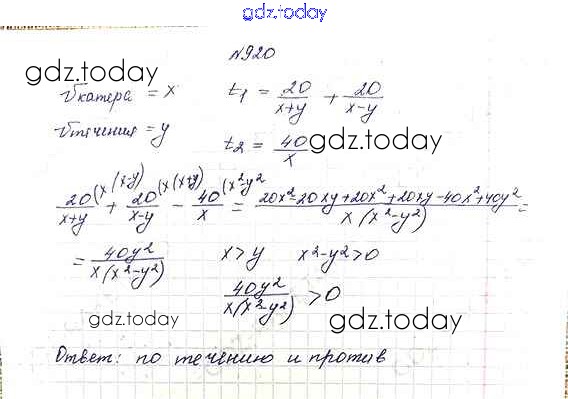 gdz.today
N920
gdz.today
Vкатера = x   t₁ = 20/(x+y) + 20/(x-y)
Vтечения = y   t₂ = 40/x
gdz.today
20/(x+y) (x(x-y) + 20/(x-y) (x(x+y) - 40/x (x²-y² = (20x²-20xy+20x²+20xy-40x²+40y²)/(x(x²-y²)) =
= 40y²/(x(x²-y²))   x>y   x²-y²>0
40y²/(x(x²-y²)) >0
gdz.today
gdz.today
Ответ: по течению и против